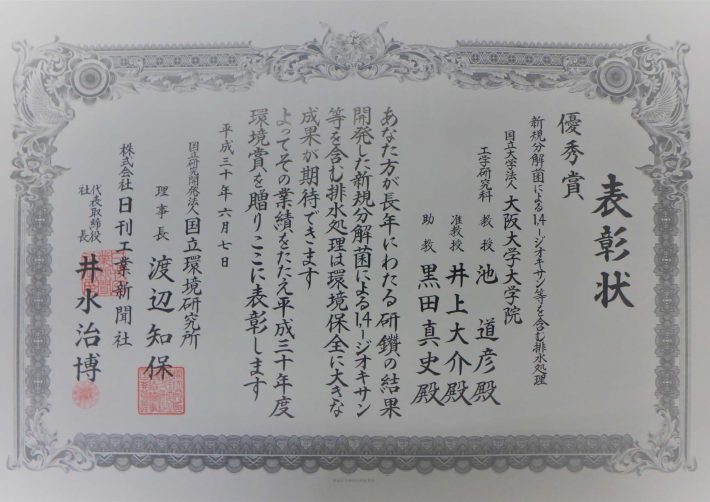 表彰状
優秀賞
新規分解菌による1,4-ジオキサン等を含む排水処理
国立大学法人 大阪大学大学院
工学研究科 教授 池 道彦殿
准教授 井上大介殿
助教 黒田真史殿
あなた方が長年にわたる研鑽の結果
開発した新規分解菌による1,4-ジオキサン
等を含む排水処理は環境保全に大きな
成果が期待できます
よってその業績をたたえ平成三十年度
環境賞を贈りここに表彰します
平成三十年六月七日
国立研究開発法人 国立環境研究所
理事長 渡辺知保
株式会社 日刊工業新聞社
代表取締役社長 井水治博